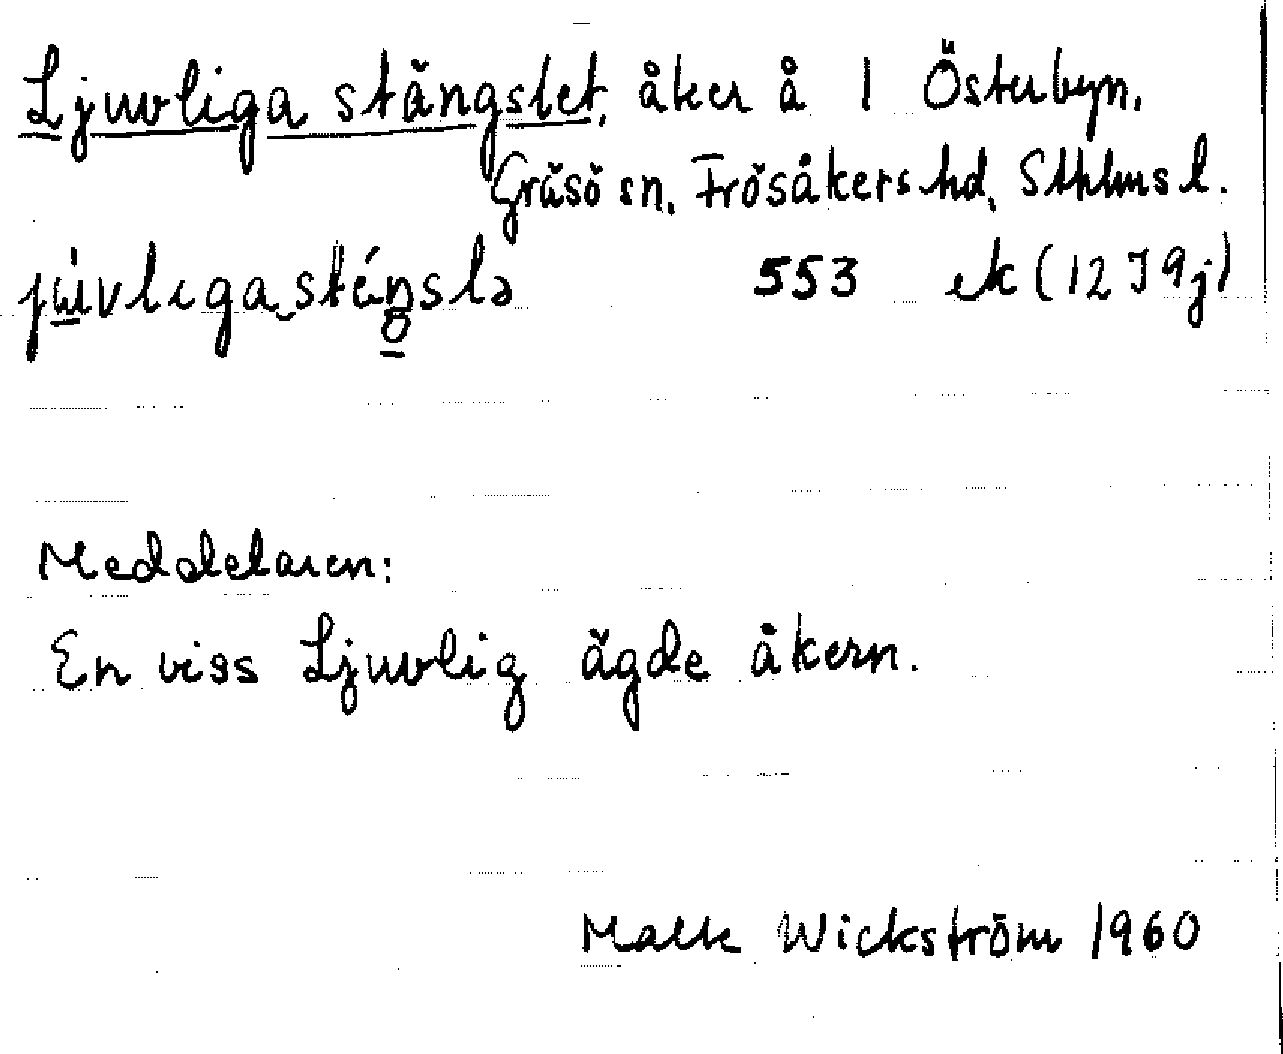 Ljuvliga stängslet, åker å 1 Österbyn.
Gräsö sn, Frösåkers hd, Sthlms l.
553 ek (12 I 9 j)
Meddelaren:
En viss Ljuvlig ägde åkern.
Wickström 1960